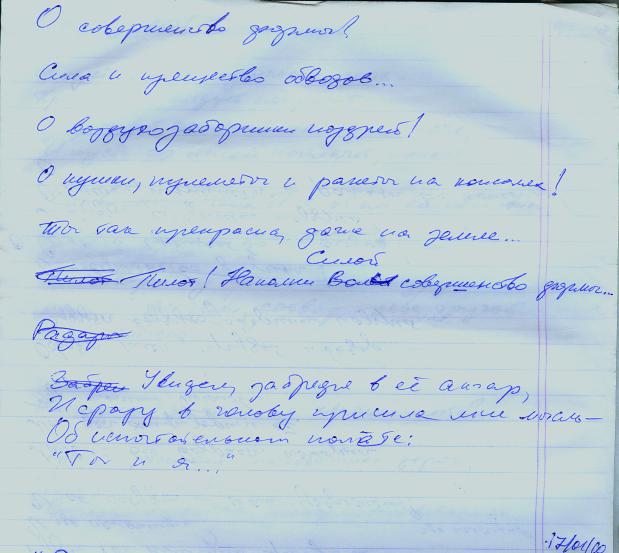 О совершенство формы!
Сила и изящество обводов...
О воздухозаборники ноздрей!
О пушки, пулеметы и ракеты на консолях!
Ты так прекрасна, даже на земле...
Силой
Пилот Пилот! Наполни совершенство формы...
Радары
Забрел Увидел, забредя в её ангар,
И сразу в голову пришла мне мысль –
Об испытательном полёте:
"Ты и я..."
17/01/00